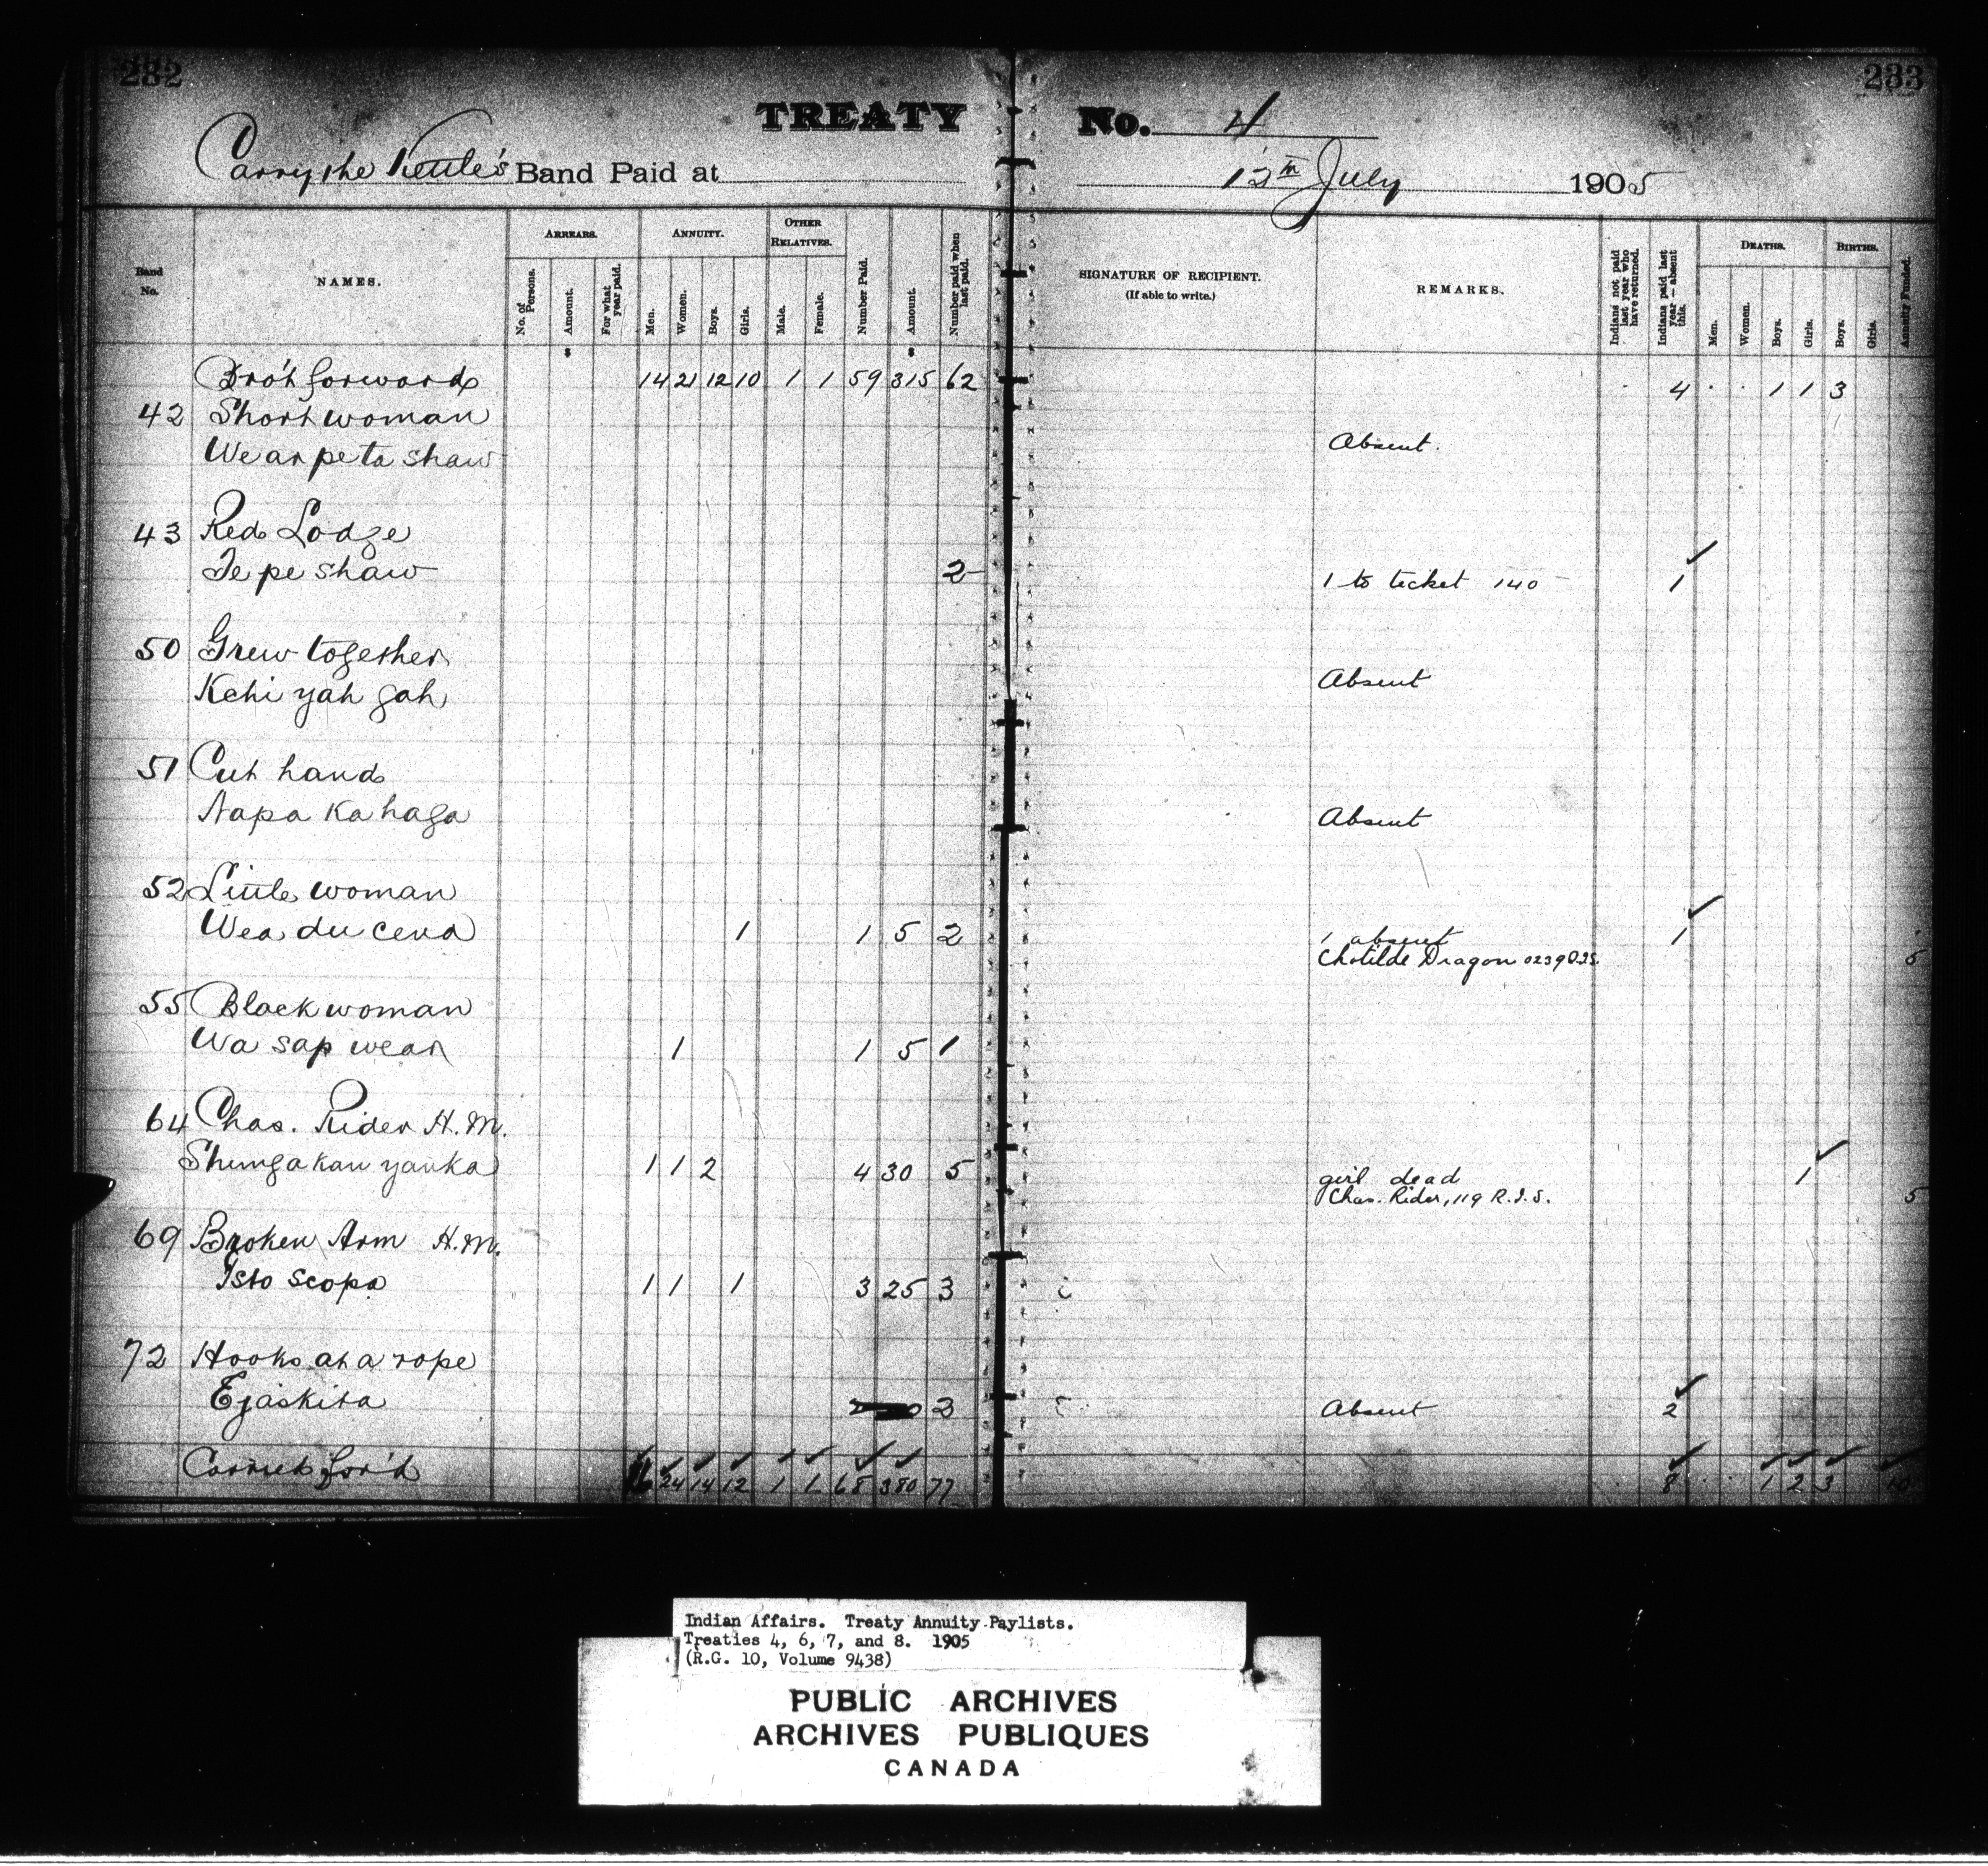 232
233
TREATY No. 4
Carry the Kettle's Band Paid at 12th July 1905
Band No.
NAMES.
ARREARS.
No. of Persons.
Amount.
For what year paid.
ANNUITY.
Men.
Women.
Boys.
Girls.
OTHER RELATIVES.
Male.
Female.
Number Paid.
Amount.
Number paid when last paid.
SIGNATURE OF RECIPIENT.
(If able to write.)
REMARKS.
Indians not paid last year who have returned.
Indians paid last year — absent this.
DEATHS.
Men.
Women.
Boys.
Girls.
BIRTHS.
Boys.
Girls.
Annuity Funded.
Bro't forward 14 21 12 10 1 1 59 315 62 4 1 1 3
42 Short woman
We an peta shaw Absent.
43 Red Lodge
Te pe shaw 2 1 to ticket 140 1
50 Grew together
Kehi yah gah Absent
51 Cut hand
Napa ka haga Absent
52 Little woman
Wea du cena 1 1 5 2 1 absent 1
Chotilde Dragon 0239 Q.I.S. 5
55 Black woman
Wa sap wean 1 1 5 1
64 Chas. Rider H.M.
Shunga kan yanka 1 1 2 4 30 5 girl dead 1
Chas. Rider, 119 R.I.S. 5
69 Broken Arm H.M.
Isto scopa 1 1 1 3 25 3
72 Hooks at a rope
Ejaskita 2 Absent 2
Carried for'd 16 24 14 12 1 1 68 380 77 8 1 2 3 10
Indian Affairs. Treaty Annuity Paylists.
Treaties 4, 6, 7, and 8. 1905
(R.G. 10, Volume 9438)
PUBLIC ARCHIVES
ARCHIVES PUBLIQUES
CANADA